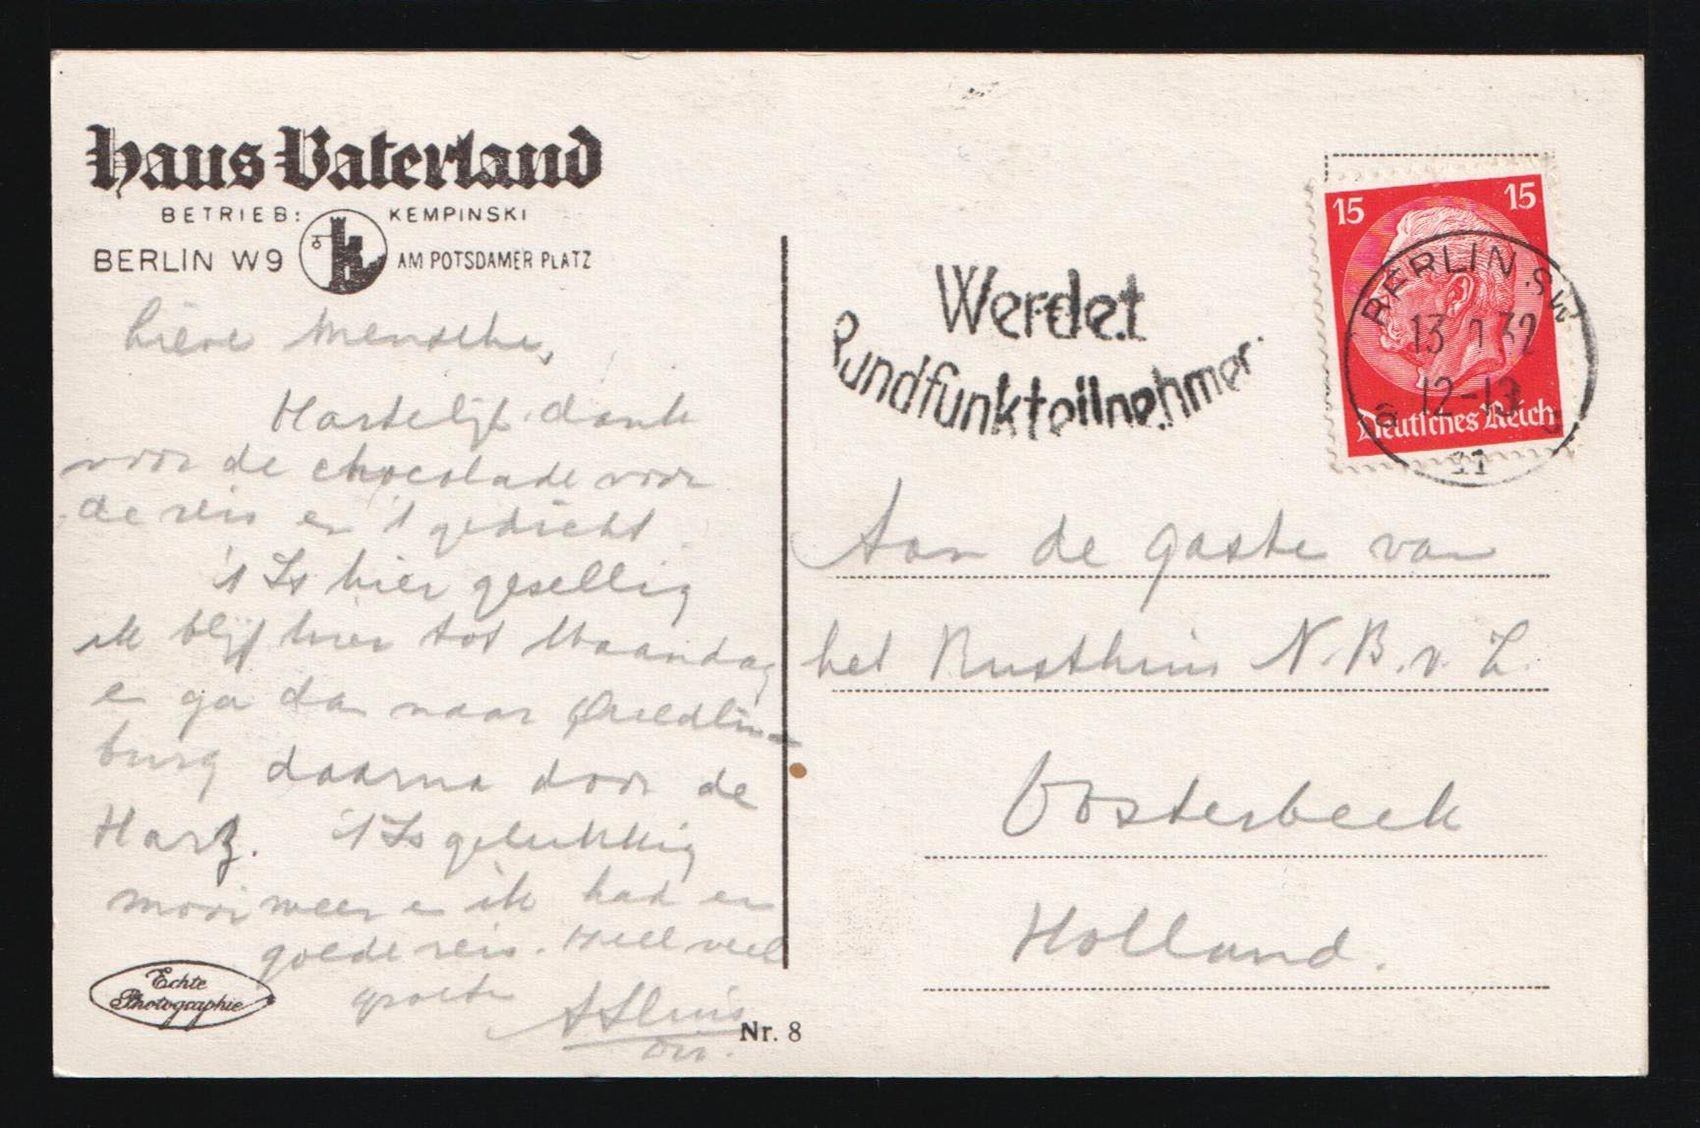 Haus Vaterland
BETRIEB: KEMPINSKI
BERLIN W9 AM POTSDAMER PLATZ
Lieve Mensche,
Hartelijk dank
voor de chocolade voor
de reis en 't gedicht
't Is hier gesellig
ik blijf hier tot Maandag
en ga dan naar Quedlin-
burg daarna door de
Harz. 't Is gelukkig
mooi weer en ik had en
goede reis. Heel veel
groete
Echte
Photographie
Nr. 8
Werdet
Rundfunkteilnehmer
15 15
Deutsches Reich
BERLIN SW
32
12-13
a
11
Aan de gaste van
het Rusthuis N.B.v.L.
Oosterbeek
Holland.